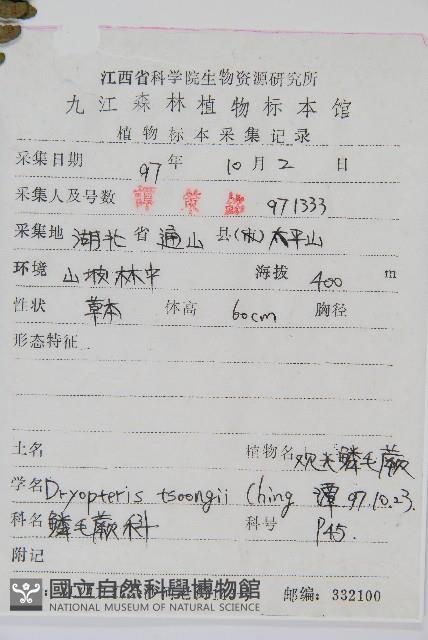 江西省科学院生物资源研究所
九江森林植物标本馆
植物标本采集记录
采集日期 97 年 10 月 2 日
采集人及号数 譚 971333
采集地 湖北 省 通山 县(市) 太平山
环境 山坡林中 海拔 400 m
性状 草本 体高 60cm 胸径
形态特征
土名 植物名 观光鳞毛蕨
学名 Dryopteris tsoongii Ching 潭 97.10.23.
科名 鳞毛蕨科 科号 P45.
附记
邮编: 332100
國立自然科學博物館
NATIONAL MUSEUM OF NATURAL SCIENCE